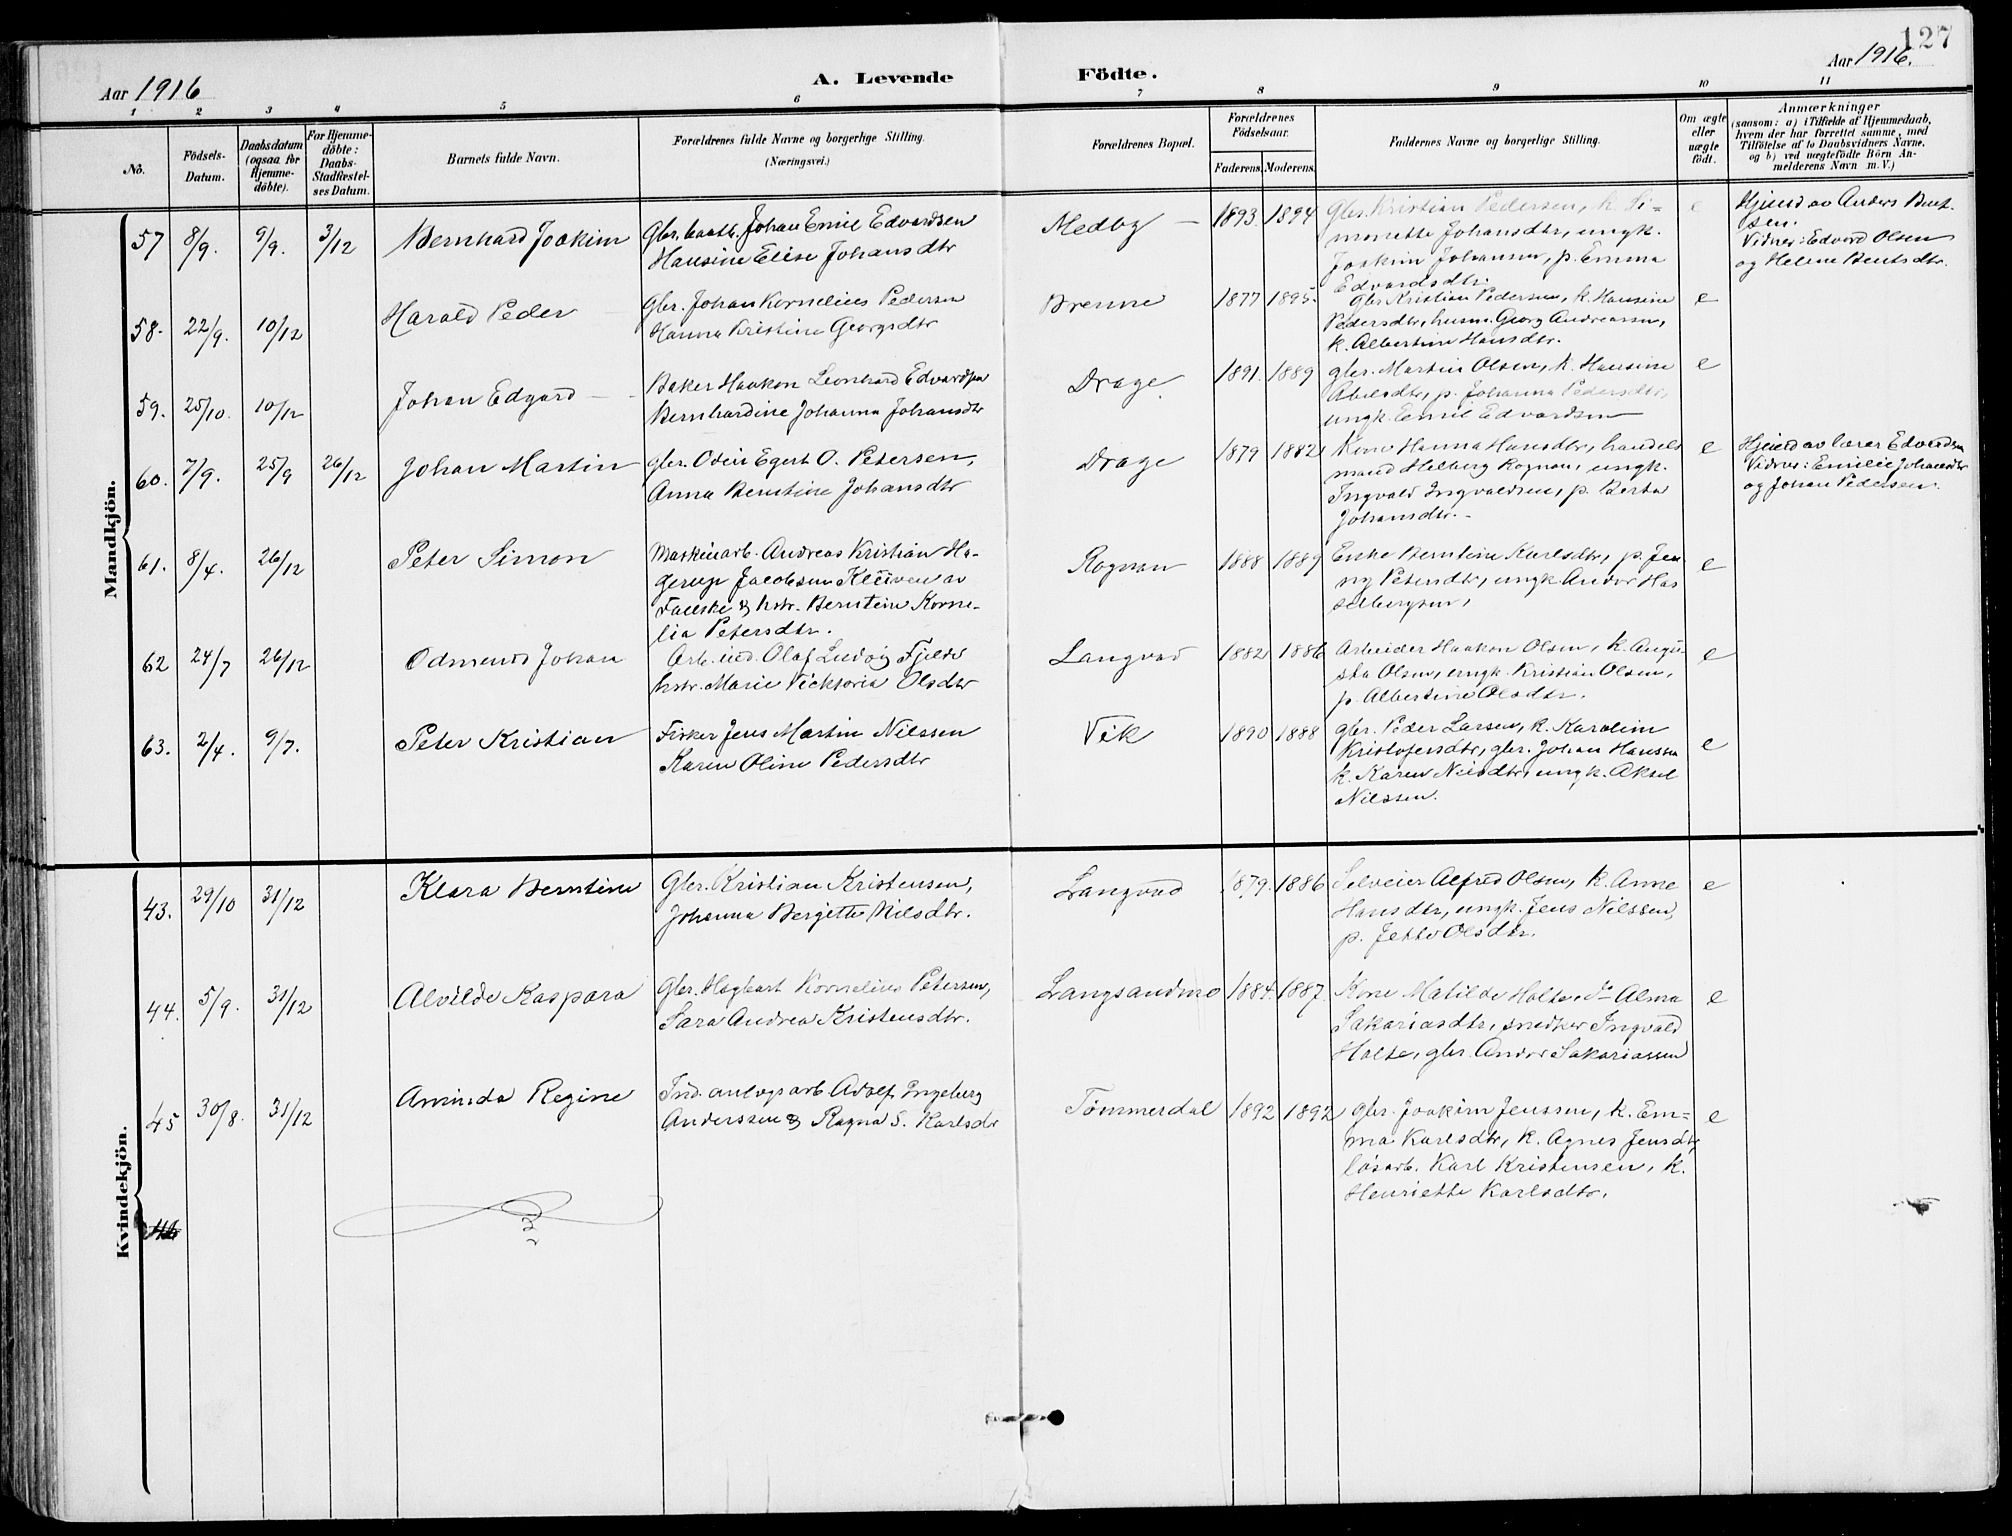 127
Aar 1916
A. Levende Födte.
Aar 1916.
1 2 3 4 5 6 7 8 9 10 11
No.
Födsels-Datum.
Daabsdatum (ogsaa for Hjemme-döbte).
For Hjemme-döbte: Daabs-Stadfæstel-ses Datum.
Barnets fulde Navn.
Forældrenes fulde Navne og borgerlige Stilling.
(Næringsvei.)
Forældrenes Bopæl.
Forældrenes Födselsaar.
Faderens. Moderens.
Faddernes Navne og borgerlige Stilling.
Om ægte eller uægte födt.
Anmærkninger
(saasom: a) i Tilfælde af Hjemmedaab,
hvem der har forrettet samme, med
Tilföielse af to Daabsvidners Navne,
og b) ved uægtefödte Börn An-
melderens Navn m. V.)
Mandkjön.
57 8/9. 9/9. 3/12 Bernhard Joakim
Gbr. baatb. Johan Emil Edvardsen
Hansine Elise Johansdtr
Medby — 1893. 1894
Gbr. Kristian Pedersen, k. Si=
monette Johansdtr, ungk.
Joakim Johansen, p. Emma
Edvardsdtr.
e
Hjemd av Anders Bent-
sen.
Vidner: Edvard Olsen
og Helene Bentsdtr.
58. 22/9. 10/12 Harald Peder
Gbr. Johan Kornelius Pedersen
Hanna Kristine Georgsdtr
Brenne 1877 1895.
Gbr. Kristian Pedersen, k. Hansine
Pedersdtr, husm. Georg Andreassen,
k. Albertine Hansdtr.
e
59. 25/10. 10/12 Johan Edgard —
Baker Haakon Leonhard Edvardsen
Bernhardine Johanna Johansdtr
Drage 1891. 1889
gbr. Martin Olsen, k. Hansine
Abelsdtr, p. Johanna Pedersdtr,
ungk. Emil Edvardsen
e
60. 7/9. 25/9 26/12 Johan Martin
gbr. Odin Egert O. Petersen,
Anna Berntine Johansdtr
Drage 1879 1882
Kone Hanna Hansdtr, handels
mand Helberg Rognan, ungk.
Ingvald Ingvaldsen, p. Berta
Johansdtr. -
e
Hjemd av lærer Edvardsen
Vidner: Emilie Johansdtr
og Johan Pedersen.
61. 8/4. 26/12 Peter Simon
Maskinarb. Andreas Kristian Ha-
gerup Jacobsen Kleiven av
Fauske & hstr. Berntine Korne-
lia Petersdtr.
Rognan 1888 1889
Enke Berntine Karlsdtr, p. Jen
ny Petersdtr, ungk. Andor Has
selbergsen,
e
62 24/7 26/12 Odmund Johan
Arb. ind. Olaf Ludvig Fjelde
hstr. Marie Vicktoria Olsdtr
Langvad 1882 1886
Arbeider Haakon Olsen, k. Augu-
sta Olsen, ungk. Kristian Olsen,
p. Albertine Olsdtr.
e
63. 2/4. 9/7. Peter Kristian
Fisker Jens Martin Nilssen
Karen Oline Pedersdtr
Vik 1890 1888
gbr. Peder Larsen, k. Karolin
Kristofersdtr, gbr. Johan Hanssen
k. Karen Nilsdtr, ungk. Aksel
Nilssen.
e
Kvindekjön.
43. 29/10 31/12 Klara Berntine
Gbr. Kristian Kristensen,
Johanna Bergitte Nilsdtr.
Langvad 1879. 1886
Selveier Alfred Olsen, k. Anne
Hansdtr, ungk. Jens Nilssen,
p. Jette Olsdtr.
e
44. 5/9. 31/12 Alvilde Kaspara
Gbr. Hagbart Kornelius Petersen,
Sara Andrea Kristensdtr.
Langsandmo 1884. 1887.
Kone Matilde Holte, do Alma
Sakariasdtr, snedker Ingvald
Holte, gbr. Andor Sakariassen
e
45 30/8. 31/12 Aminda Regine
Ind. anlegsarb. Adolf Ingeberg
Anderssen & Ragna S. Karlsdtr
Tømmerdal 1892 1892
gbr. Joakim Jenssen, k. Em=
ma Karlsdtr, k. Agnes Jensdtr,
løsarb. Karl Kristensen, k.
Henriette Karlsdtr.
e